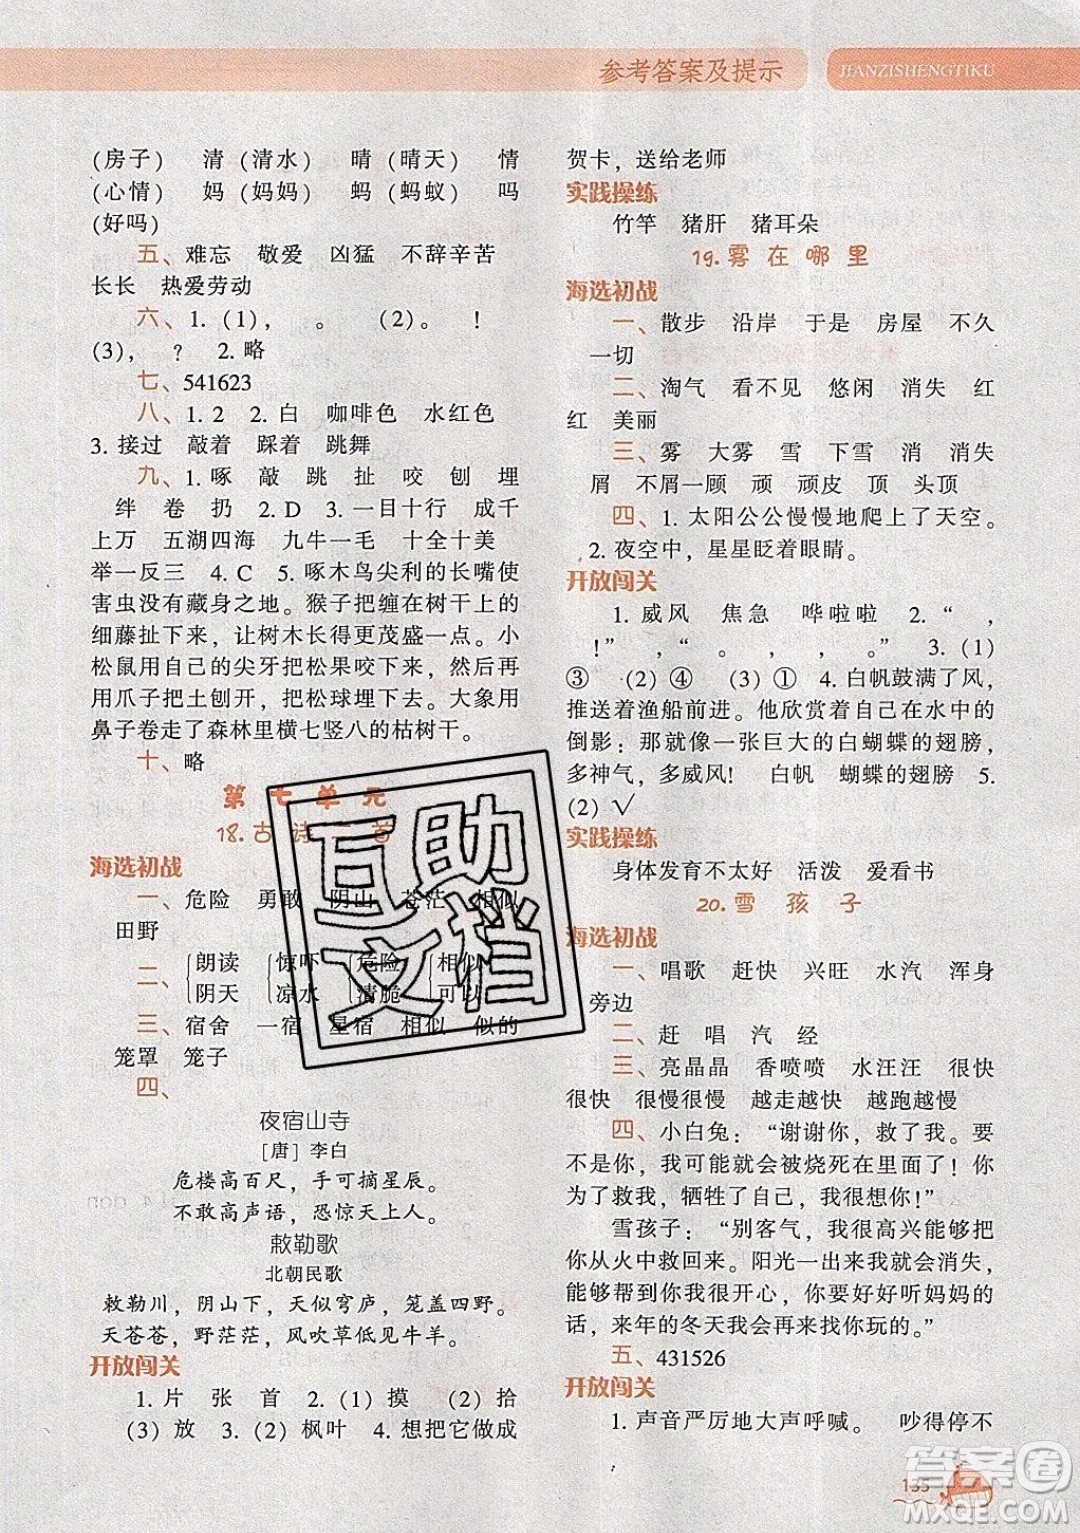 参考答案及提示
JIANZISHENGTIKU
(房子) 清 (清水) 晴 (晴天) 情
(心情) 妈 (妈妈) 蚂 (蚂蚁) 吗
(好吗)
五、难忘 敬爱 凶猛 不辞辛苦
长长 热爱劳动
六、1. (1), 。 (2)。 !
(3), ? 2. 略
七、541623
八、1. 2 2. 白 咖啡色 水红色
3. 接过 敲着 踩着 跳舞
九、1. 啄 敲 跳 扯 咬 刨 埋
绊 卷 扔 2. D 3. 一目十行 成千
上万 五湖四海 九牛一毛 十全十美
举一反三 4. C 5. 啄木鸟尖利的长嘴使
害虫没有藏身之地。猴子把缠在树干上的
细藤扯下来，让树木长得更茂盛一点。小
松鼠用自己的尖牙把松果咬下来，然后再
用爪子把土刨开，把松球埋下去。大象用
鼻子卷走了森林里横七竖八的枯树干。
十、略
第七单元
18.古诗二首
海选初战
一、危险 勇敢 阴山 苍茫 相似
田野
二、朗读 惊吓 危险 相似
阴天 凉水 清脆 可以
三、宿舍 一宿 星宿 相似 似的
笼罩 笼子
四、
夜宿山寺
[唐] 李白
危楼高百尺，手可摘星辰。
不敢高声语，恐惊天上人。
敕勒歌
北朝民歌
敕勒川，阴山下，天似穹庐，笼盖四野。
天苍苍，野茫茫，风吹草低见牛羊。
开放闯关
1. 片 张 首 2. (1) 摸 (2) 拾
(3) 放 3. (2) 枫叶 4. 想把它做成
贺卡，送给老师
实践操练
竹竿 猪肝 猪耳朵
19.雾在哪里
海选初战
一、散步 沿岸 于是 房屋 不久
一切
二、淘气 看不见 悠闲 消失 红
红 美丽
三、雾 大雾 雪 下雪 消 消失
屑 不屑一顾 顽 顽皮 顶 头顶
四、1. 太阳公公慢慢地爬上了天空。
2. 夜空中，星星眨着眼睛。
开放闯关
1. 威风 焦急 哗啦啦 2. “ ，
！” ， “ 。 ， ， 。” 3. (1)
③ (2) ④ (3) ① 4. 白帆鼓满了风，
推送着渔船前进。他欣赏着自己在水中的
倒影：那就像一张巨大的白蝴蝶的翅膀，
多神气，多威风！ 白帆 蝴蝶的翅膀 5.
(2) √
实践操练
身体发育不太好 活泼 爱看书
20.雪孩子
海选初战
一、唱歌 赶快 兴旺 水汽 浑身
旁边
二、赶 唱 汽 经
三、亮晶晶 香喷喷 水汪汪 很快
很快 很慢很慢 越走越快 越跑越慢
四、小白兔：“谢谢你，救了我。要
不是你，我可能会被烧死在里面了！你
为了救我，牺牲了自己，我很想你！”
雪孩子：“别客气，我很高兴能够把
你从火中救回来。阳光一出来我就会消失，
能够帮到你我很开心，你要好好听妈妈的
话，来年的冬天我会再来找你玩的。”
五、431526
开放闯关
1. 声音严厉地大声呼喊。 吵得停不
135
互助文档
答案圈
MXQE.COM